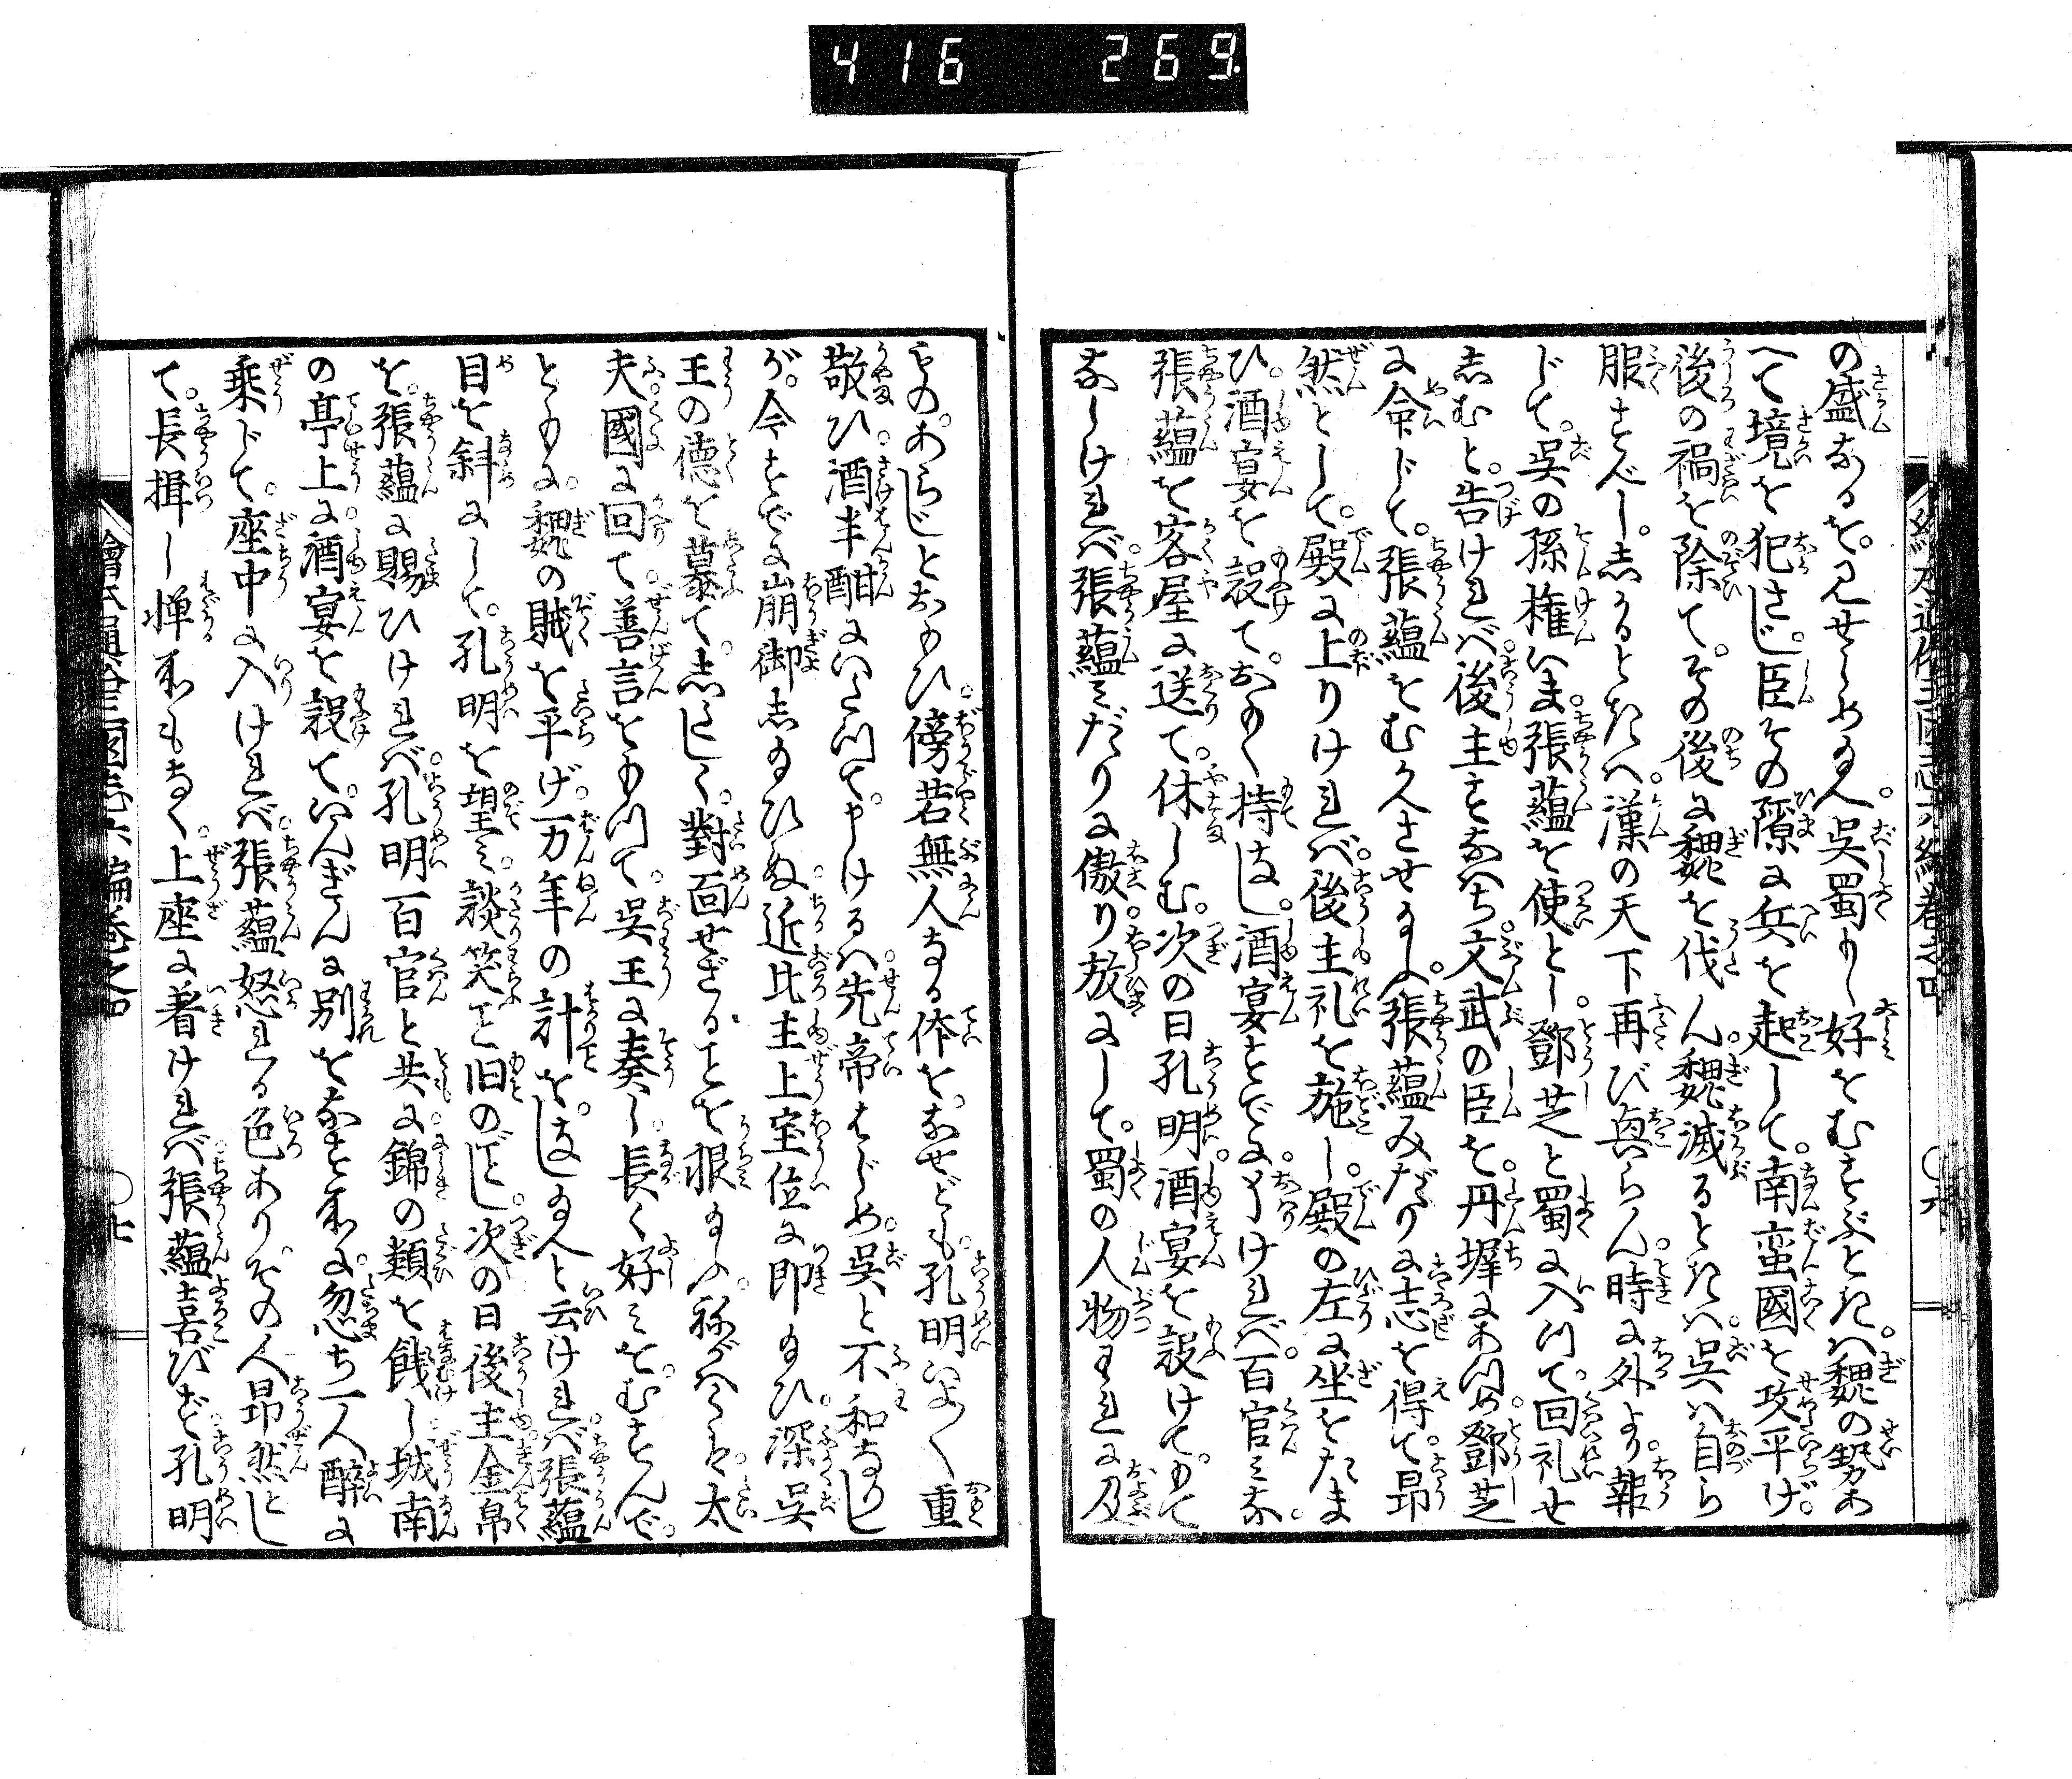 416 269
の盛なるを。見せしめ玉へ。呉蜀もし好をむすぶときハ。魏の勢あ
へて境を犯さじ。臣その隙に兵を起して。南蛮國を攻平げ。
後の禍を除て。その後に魏を伐ん。魏滅るときハ。呉ハ自ら
服すべし。しかるときハ。漢の天下再び興らん。時に外より報
じて。呉の孫権いま。張蘊を使とし。鄧芝と蜀に入つて。回礼せ
しむと。告けれバ後主すなハち。文武の臣を。丹墀にあつめ。鄧芝
に命じて。張蘊をむかへさせ玉ふ。張蘊みだりに志を得て。昂
然として。殿に上りけれバ。後主礼を施し。殿の左に坐をたま
ひ。酒宴を設て。あつく持なし。酒宴すでに。おハりけれバ。百官ミな。
張蘊を客屋に送て。休しむ。次の日孔明。酒宴を設けて。もて
なしけれバ。張蘊ミだりに傲り。放にして。蜀の人物われに及
ぶもの。あらじとおもひ。傍若無人なる体を。なせども。孔明いよ〱重く
敬ひ。酒半酣にいたつて。申しけるハ。先帝はじめ。呉と不和なりし
が。今すでに崩御し玉ひぬ。近比主上宝位に即玉ひ。深呉
王の徳を慕て。したしく。對面せざることを恨玉ふ。ねがハくハ。太
夫國に回て。善言をもつて。呉王に奏し。長く好ミを。むすんで。
ともに。魏の賊を平げ。万年の計を。なし玉へと云けれバ。張蘊
目を斜にして。孔明を望ミ。談笑こと旧のごとし。次の日後主。金帛
を。張蘊に賜ひけれバ。孔明百官と共に。錦の類を餞し。城南
の亭上に。酒宴を設て。いんぎんに別をなすに。忽ち一人酔に
乗じて。座中に入けれバ。張蘊怒れる色あり。その人昂然とし
て。長揖し憚色もなく。上座に着けれバ。張蘊喜びず。孔明